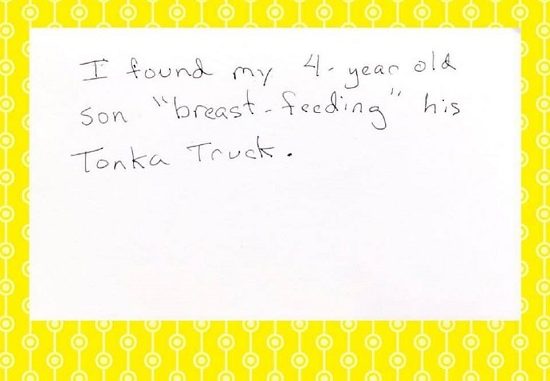 I found my 4-year old
son "breast-feeding" his
Tonka Truck.